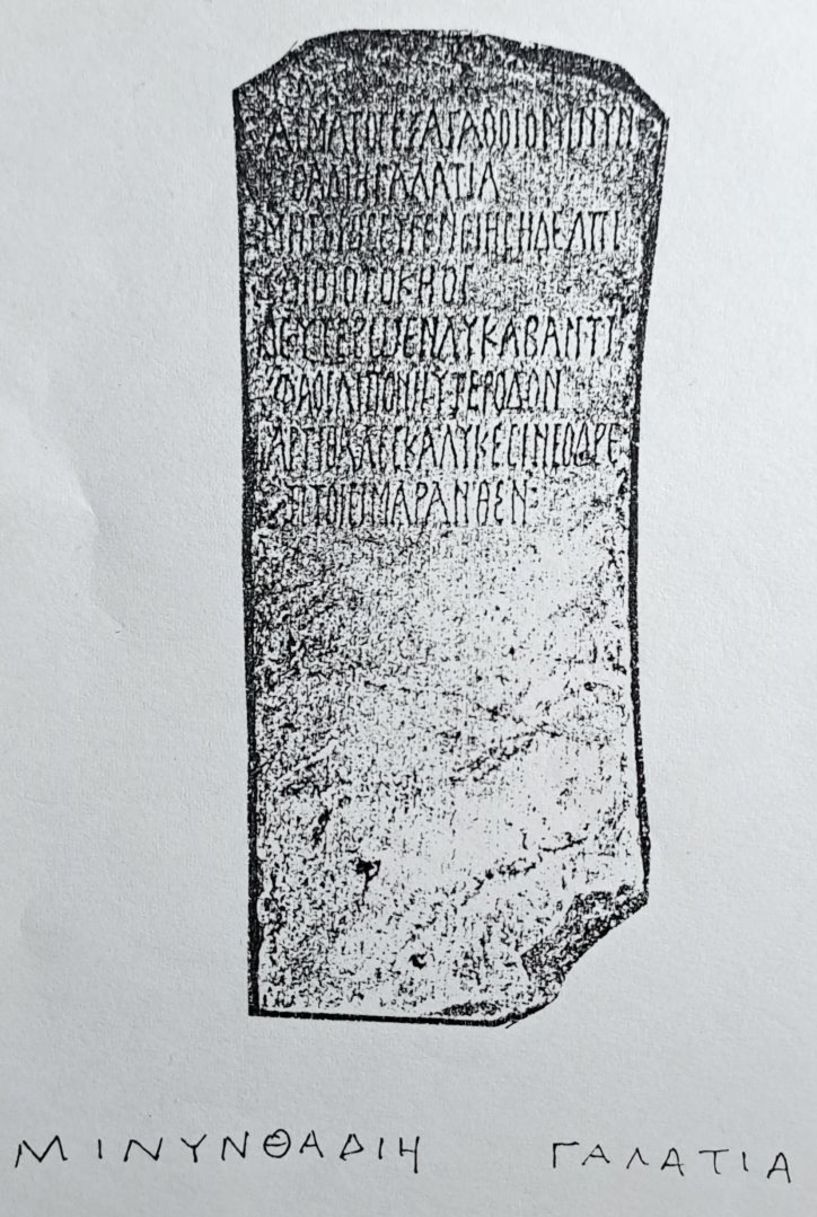 ΑΙΜΑΤΟϹΕΞΑΓΑΘΟΙΟΜΙΝΥΝ
ΘΑΔΙΗΓΑΛΑΤΙΑ
ΕΥΓΕΝΕΙΗϹΗΔΕΛΠΙ
ΔΙΟΙΟΤΟΚΗΟϹ
ΔΕΥΤΕΡΩΕΝΛΥΚΑΒΑΝΤΙ
ΦΑΟϹΛΙΠΟΝΗΥΤΕΡΟΔΟΝ
ΑΡΤΙΘΑΛΕϹΚΑΛΥΚΕϹΙΝΕΟΔΡΕ
ΠΤΟΙϹΙΜΑΡΑΝΘΕΝ
ΜΙΝΥΝΘΑΔΙΗ ΓΑΛΑΤΙΑ